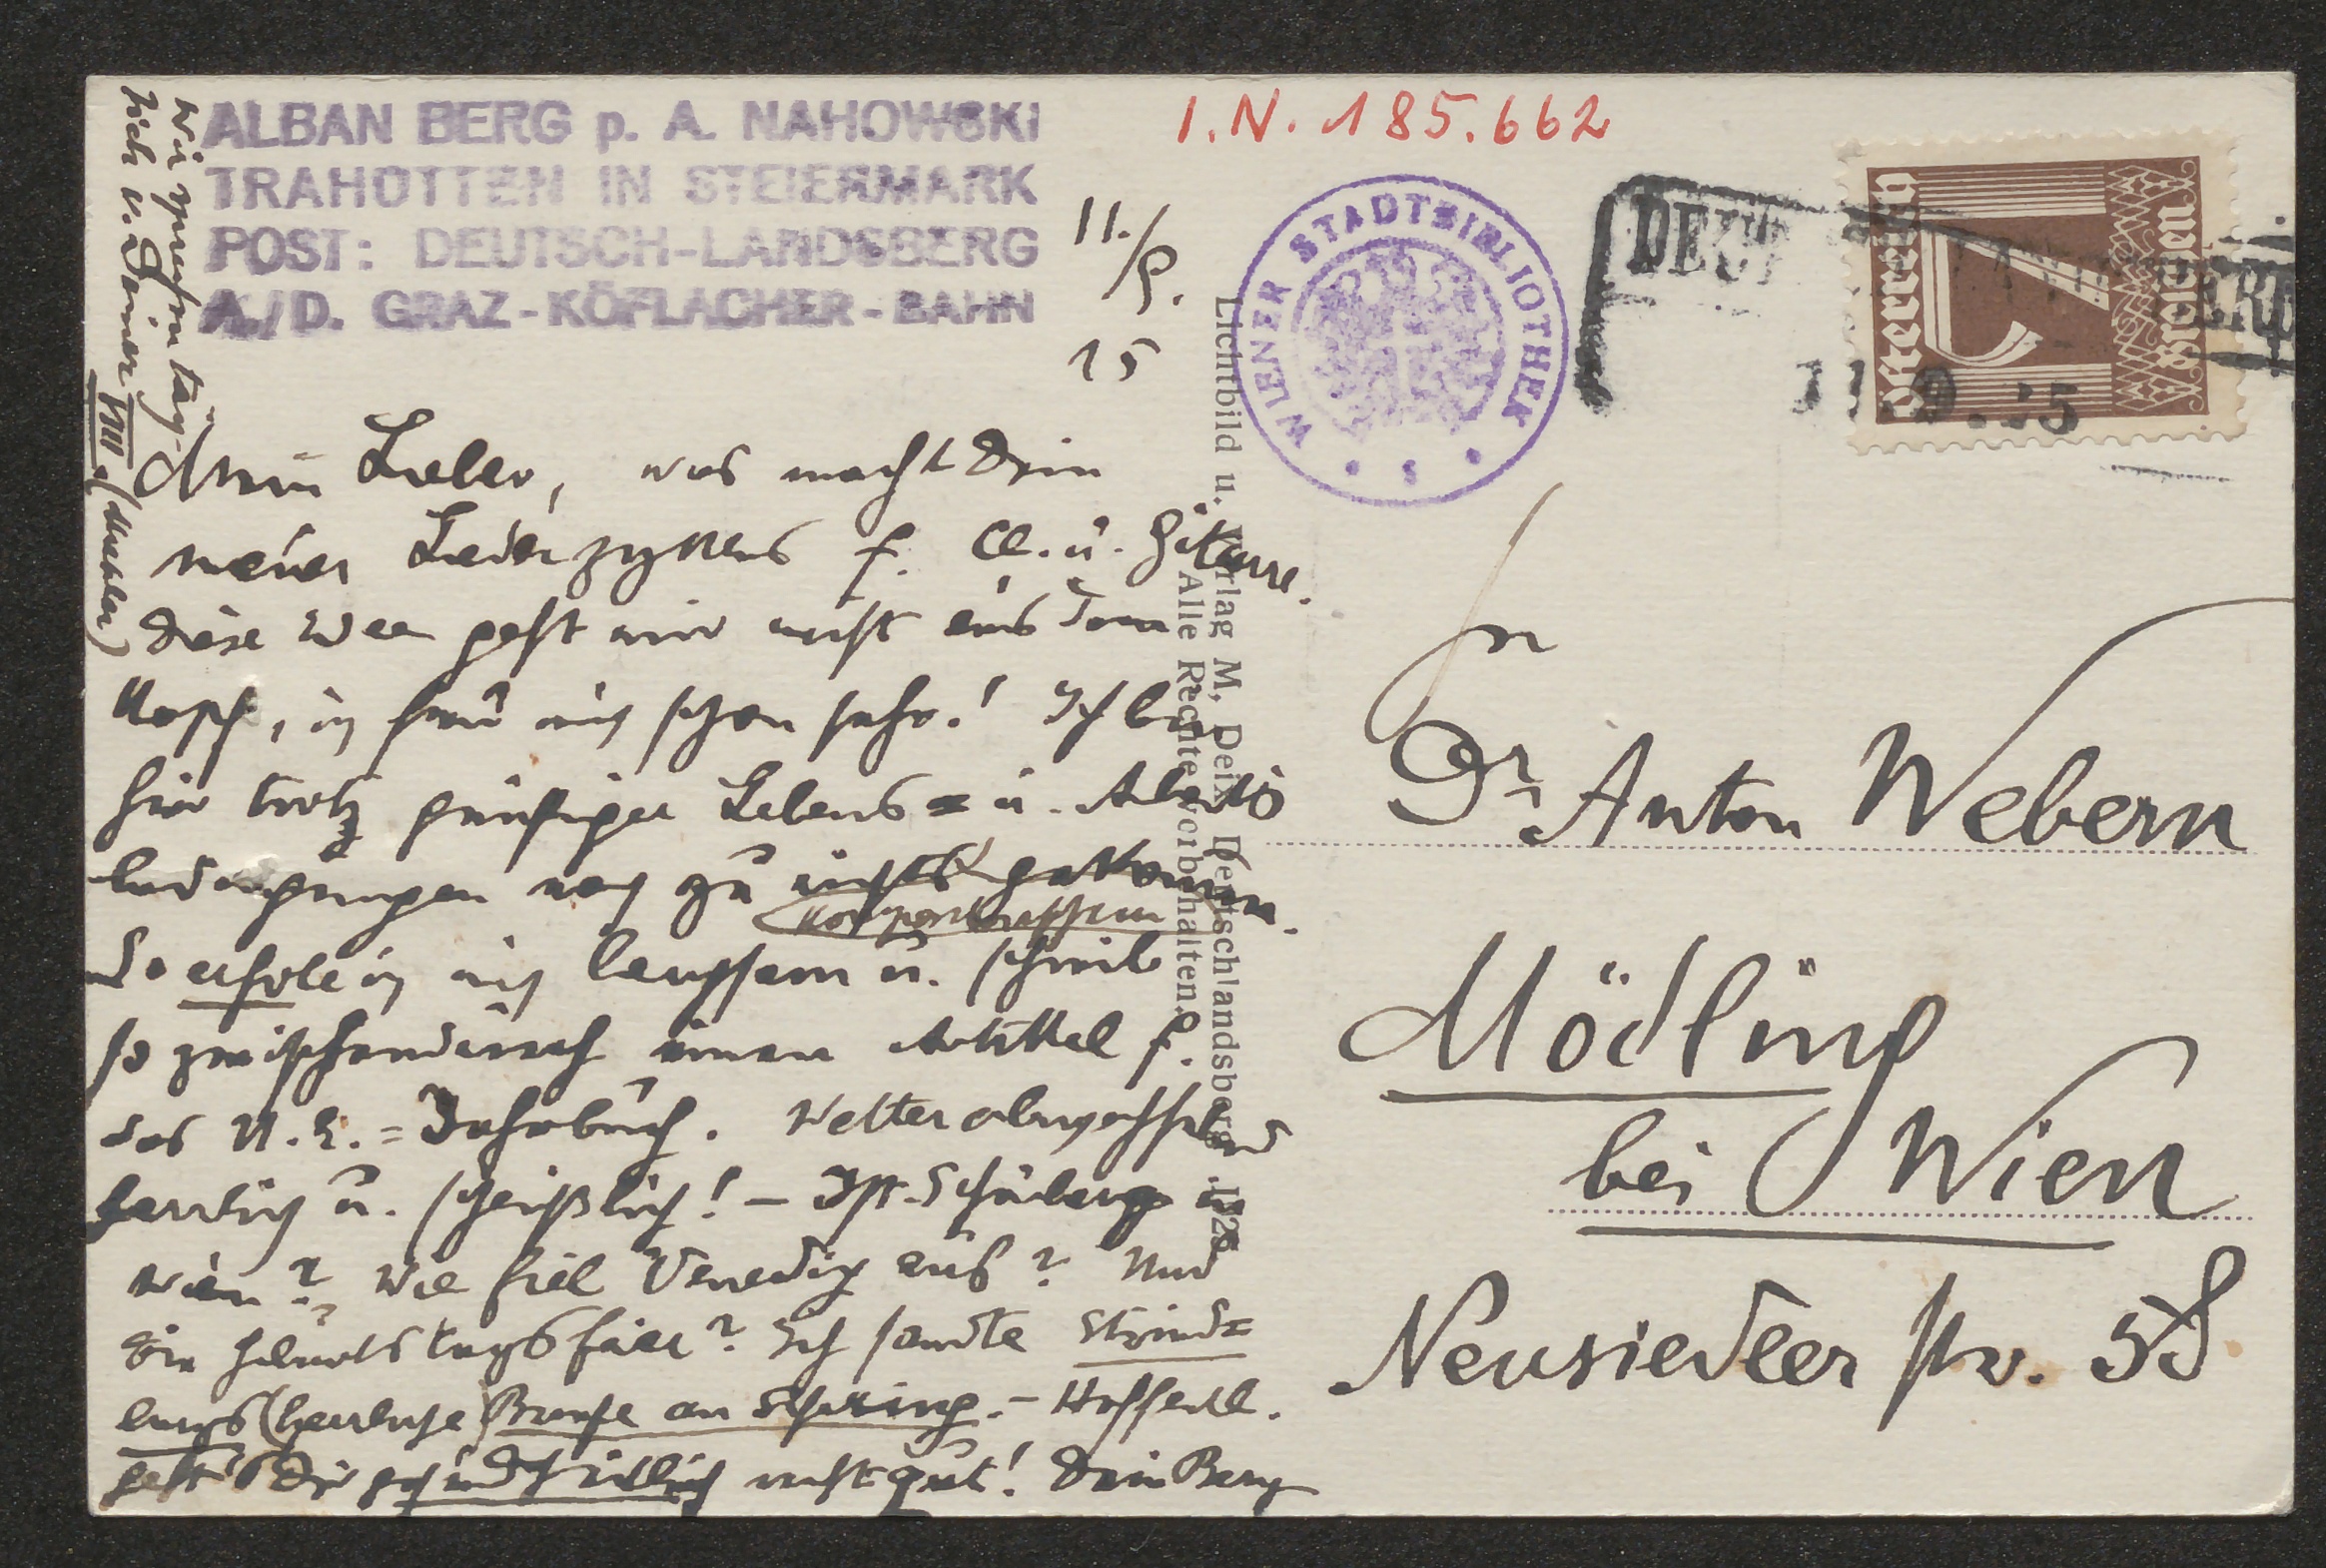 ALBAN BERG p. A. NAHOWSKI
TRAHÜTTEN IN STEIERMARK
POST: DEUTSCH-LANDSBERG
A./D. GRAZ-KÖFLACHER-BAHN
I.N. 185.662
11./9.
25
WIENER STADTBIBLIOTHEK
Österreich
7
Groschen
11.9.25
Mein Lieber, was macht Dein
neuer Liederzyklus f. Cl. u. Gitarre.
Diese Idee geht mir nicht aus dem
Kopf, ich freu mich schon sehr! Ich bin
hier trotz günstiger Lebens= u. Arbeits
bedingungen noch zu nichts gekommen.
Kompositorischem
So erhole ich mich langsam u. schreib
so zwischendurch einen Artikel f.
das U.E.=Jahrbuch. Wetter abwechselnd
herrlich u. scheußlich! – Ist Schönberg in
Wien? Wie fiel Venedig aus? Und
die Geburtstagsfeier? Ich sandte Strind=
bergs (herrliche) Briefe an Schering. – Hoffentl.
geht's Dir gesundheitlich recht gut! Dein Berg
Wir sprechen täg-
lich v. Deiner VIII. (Mahler)
Lichtbild u. Verlag M. Deix, Deutschlandsberg. 1925
Alle Rechte vorbehalten.
Hn
Dr. Anton Webern
Mödling
bei Wien
Neusiedlerstr. 58